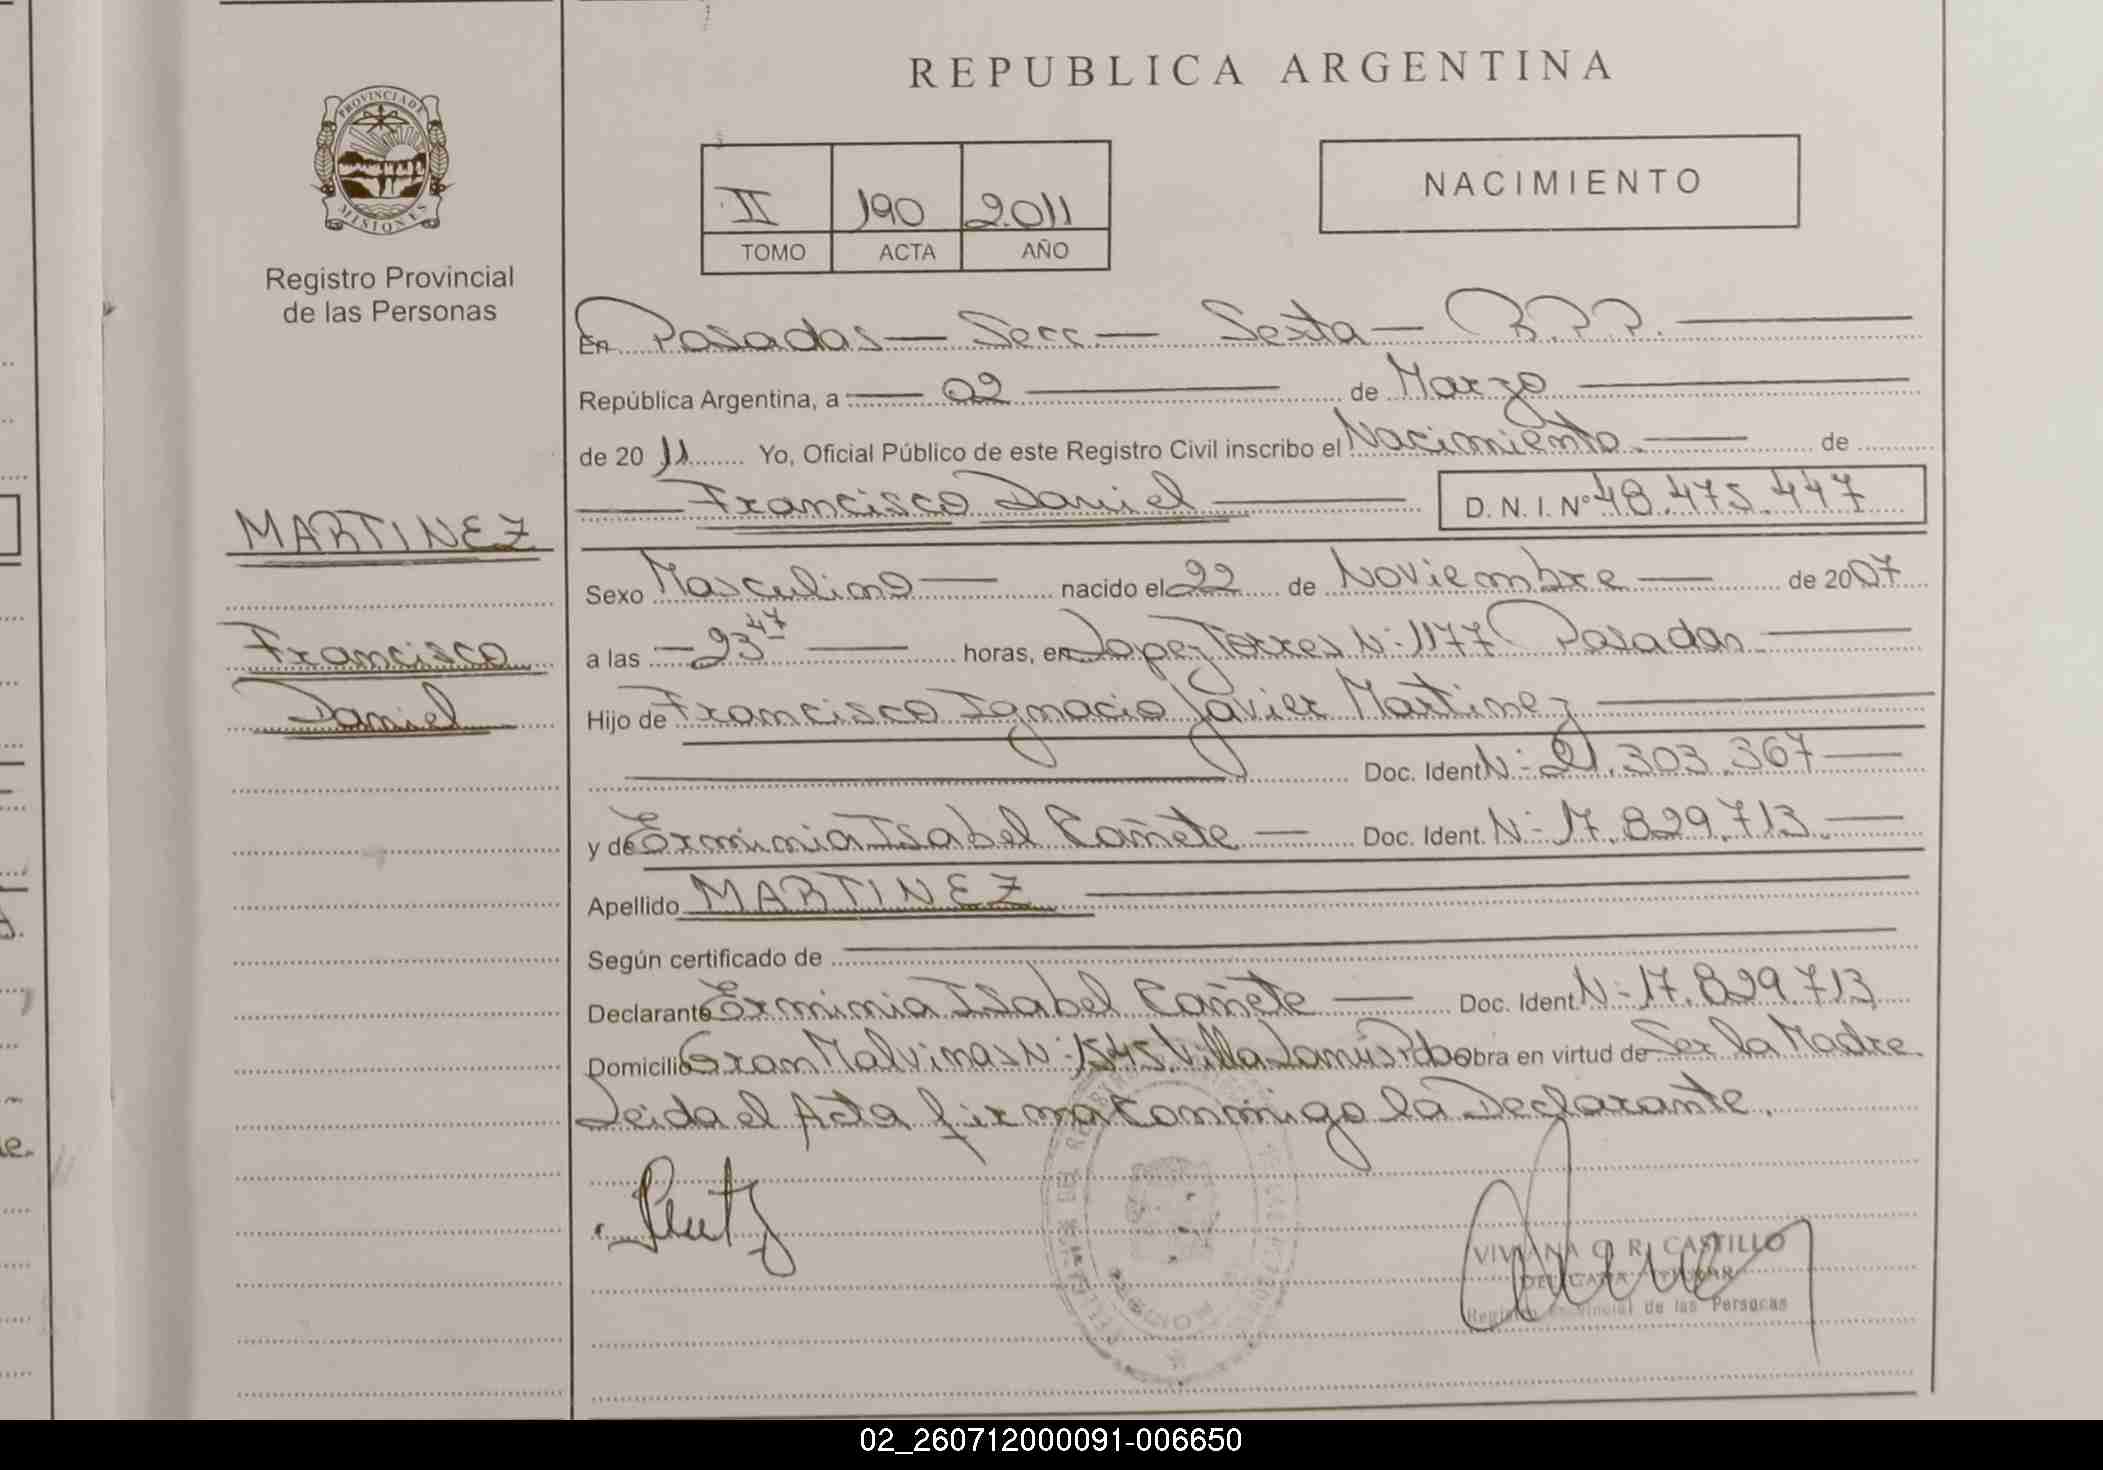 REPUBLICA ARGENTINA
PROVINCIA DE
MISIONES
Registro Provincial
de las Personas
II 190 2.011
TOMO ACTA AÑO
NACIMIENTO
En Posadas — Secc — Sexta — R.P.P.
República Argentina, a — 02 — de Marzo
de 20 11 Yo, Oficial Público de este Registro Civil inscribo el Nacimiento — de
Francisco Daniel — D. N. I. Nº 48.475.447
MARTINEZ
Francisco
Daniel
Sexo Masculino — nacido el 22 de Noviembre — de 2007
a las — 23 47 — horas, en Lopez Torres Nº 1177 Posadas
Hijo de Francisco Ignacio Javier Martinez
Doc. Ident Nº 21.303.367
y de Erminia Isabel Cañete — Doc. Ident. Nº 17.829.713.
Apellido MARTINEZ
Según certificado de
Declarante Erminia Isabel Cañete — Doc. Ident. Nº 17.829.713
Domicilio Gran Malvinas Nº 1545 Villa Lanús Pdas obra en virtud de Ser la Madre
Leida el Acta firma Conmigo la Declarante.
VIVIANA C. R. CASTILLO
DELEGADA TITULAR
Registro Provincial de las Personas
02_260712000091-006650